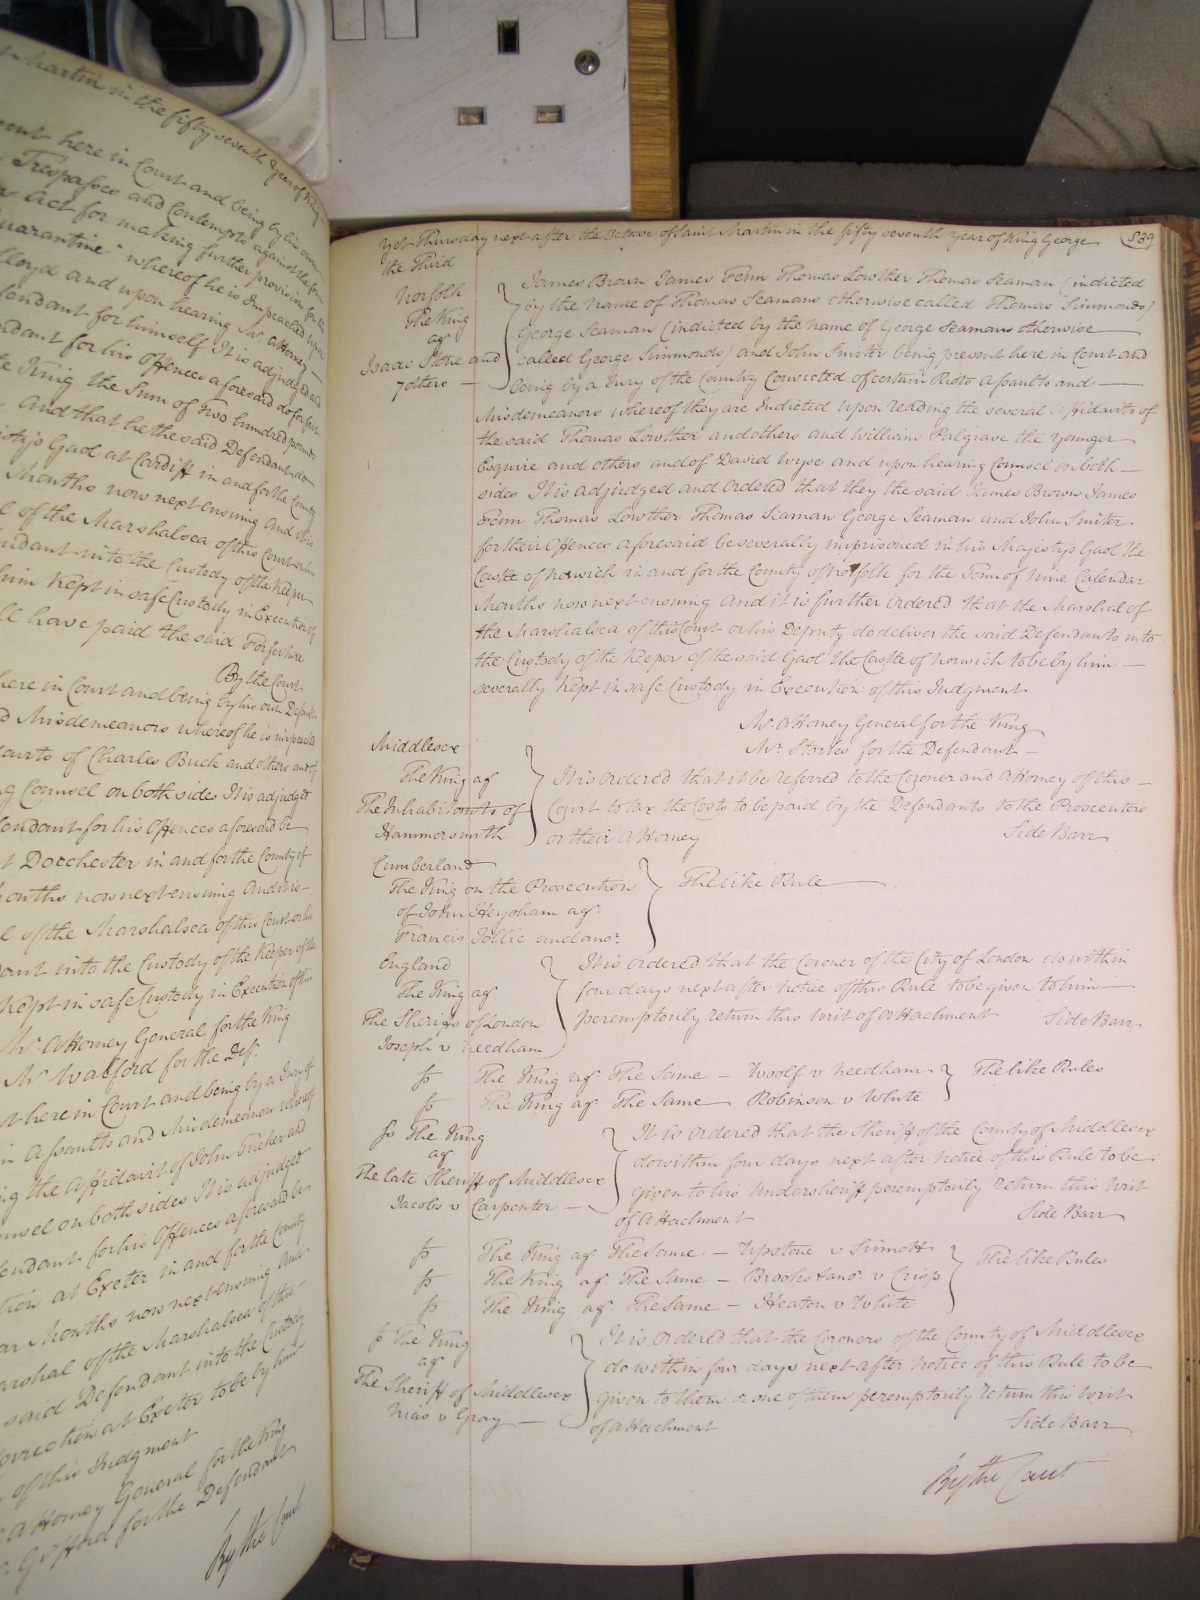 Martin in the fifty seventh Year of King
here in Court and being by his own
Trespasses and Contempts against the
Act for making further provision for the
Quarantine" whereof he is Impeached upon
Lloyd and upon hearing Mr. Attorney
for himself It is adjudged and
for his Offences aforesaid do forfeit
King the Sum of Two hundred pounds
And that he the said Defendant do
Gaol at Cardiff in and for the County
Months now next ensuing And it is
of the Marshalsea of this Court or his
into the Custody of the Keeper
him Kept in safe Custody in Execution of
have paid the said Forfeiture
By the Court
here in Court and being by his own Default
Misdemeanors whereof he is impeached
of Charles Buck and others and of
Counsel on both sides It is adjudged
for his Offences aforesaid be
Dorchester in and for the County of
Months now next ensuing And it is
of the Marshalsea of this Court or his
into the Custody of the Keeper of the
Kept in safe Custody in Execution of this
Mr. Attorney General for the King
Mr. Walford for the Deft.
here in Court and being by a Jury of
Assaults and Misdemeanors whereof
the Affidavit of John Tucker and
on both sides It is adjudged
for his Offences aforesaid be
at Exeter in and for the County
Months now next ensuing And
of the Marshalsea of this
said Defendant into the Custody
at Exeter to be by him
of this Judgment
Attorney General for the King
Gifford for the Defendant
By the Court
Yet Thursday next after the Octave of Saint Martin in the fifty seventh Year of King George 839
the Third
Norfolk
The King
agt
Isaac Stone and
7 others
James Brown James Fenn Thomas Lowther Thomas Seaman (indicted
by the name of Thomas Seamans otherwise called Thomas Simmonds)
George Seaman (indicted by the name of George Seamans otherwise
called George Simmonds) and John Smiter being present here in Court and
being by a Jury of the Country Convicted of certain Riots Assaults and
Misdemeanors whereof they are Indicted Upon reading the several Affidavits of
the said Thomas Lowther and others and William Palgrave the younger
Esquire and others and of David Wyse and upon hearing Counsel on both
sides It is adjudged and Ordered that they the said James Brown James
Fenn Thomas Lowther Thomas Seaman George Seaman and John Smiter
for their Offences aforesaid be severally imprisoned in his Majestys Gaol the
Castle of Norwich in and for the County of Norfolk for the Term of Nine Calendar
Months now next ensuing And it is further Ordered that the Marshal of
the Marshalsea of this Court or his Deputy do deliver the said Defendants into
the Custody of the Keeper of the said Gaol the Castle of Norwich to be by him
severally Kept in safe Custody in Execution of this Judgment
Mr. Attorney General for the King
Mr. Storks for the Defendants
Middlesex
The King agt
The Inhabitants of
Hammersmith
It is ordered that it be referred to the Coroner and Attorney of this
Court to tax the Costs to be paid by the Defendants to the Prosecutors
or their Attorney Side Barr
Cumberland
The King on the Prosecution
of John Heysham agt.
Francis Jollie and anor.
The like Rule
England
The King agt
The Sheriffs of London
Joseph v Needham
It is ordered that the Coroner of the City of London do within
four days next after Notice of this Rule to be given to him
peremptorily return this Writ of Attachment Side Barr
So The King agt. The Same – Woolf v Needham
So The King agt. The Same – Robinson v White
The like Rules
So The King
agt
The late Sheriff of Middlesex
Jacobs v Carpenter
It is ordered that the Sheriff of the County of Middlesex
do within four days next after Notice of this Rule to be
given to his Undersheriff peremptorily return this Writ
of Attachment Side Barr
So The King agt The Same – Upstone v Sinnott
So The King agt. The Same – Brooks & anor. v Crisp
So The King agt. The Same – Heaton v White
The like Rules
So The King
agt
The Sheriff of Middlesex
Nias v Gray
It is ordered that the Coroners of the County of Middlesex
do within four days next after Notice of this Rule to be
given to them or one of them peremptorily return this Writ
of Attachment Side Barr
By the Court